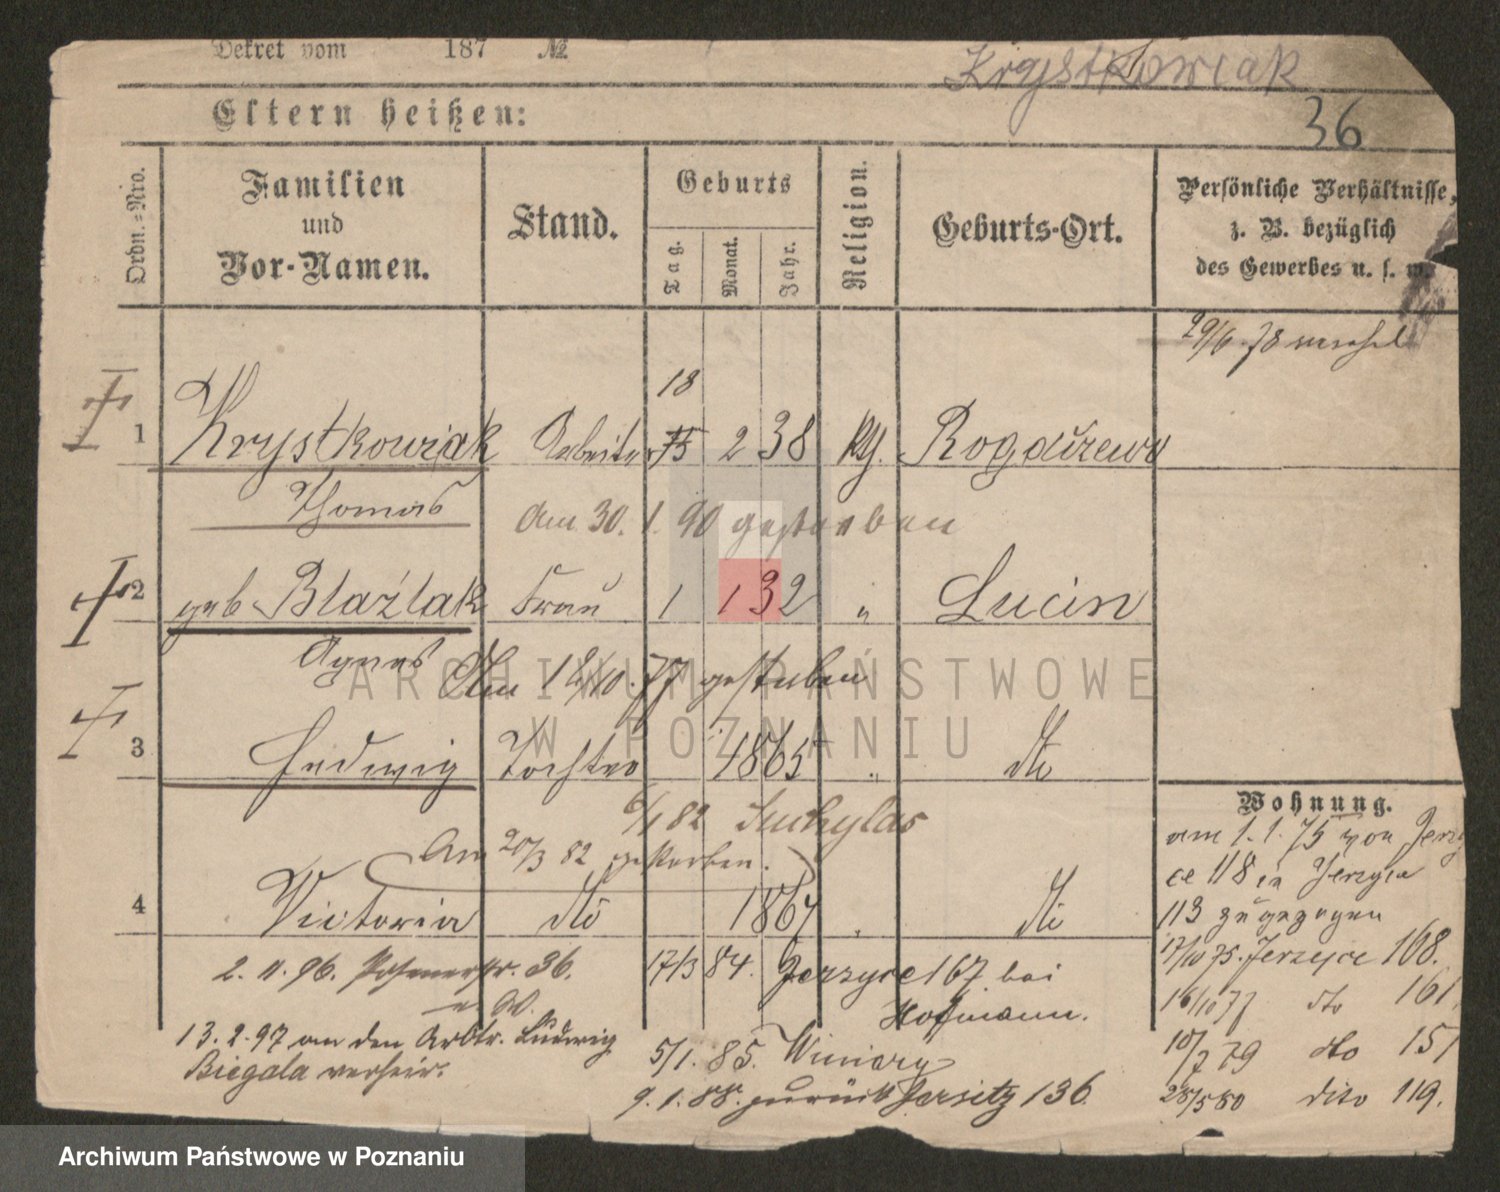 Dekret vom 187 №
Krystkowiak
36
Eltern heißen:
Ordn.-Nro.
Familien
und
Vor-Namen.
Stand.
Geburts
Tag.
Monat.
Jahr.
Religion.
Geburts-Ort.
Persönliche Verhältnisse,
z. B. bezüglich
des Gewerbes u. s. w.
29/6. 78
18
1 Krystkowiak Arbeiter 15 2 38 Rogdużewo
Thomas
am 30. 1. 90 gestorben
2 geb Błażlak Frau 1 1 32 " Lucin
Agnes Am 12/10. 77 gestorben
ARCHIWUM PAŃSTWOWE
W POZNANIU
3 Hedwig Tochter 1865 " dto
6/1 82 Suchylas
Am 20/3 82 gestorben.
4 Victoria dto 1867 " dto
Wohnung.
am 1. 1. 75 von Jerzy
ce 118 in Jerzyce
113 zugezogen
17/10 75. Jerzyce 168.
16/10 77 dto 161
10/7 79 dto 151
28/5 80 dito 119.
2. 11. 96. Posenerstr. 36.
17/3 84. Jerzyce 167. bei
Hoffmann.
13. 2. 97 an den Arbtr. Ludwig
Biegala verheir.
5/1. 85. Winiary
9. 1. 88. zurück Jersitz 136
Archiwum Państwowe w Poznaniu